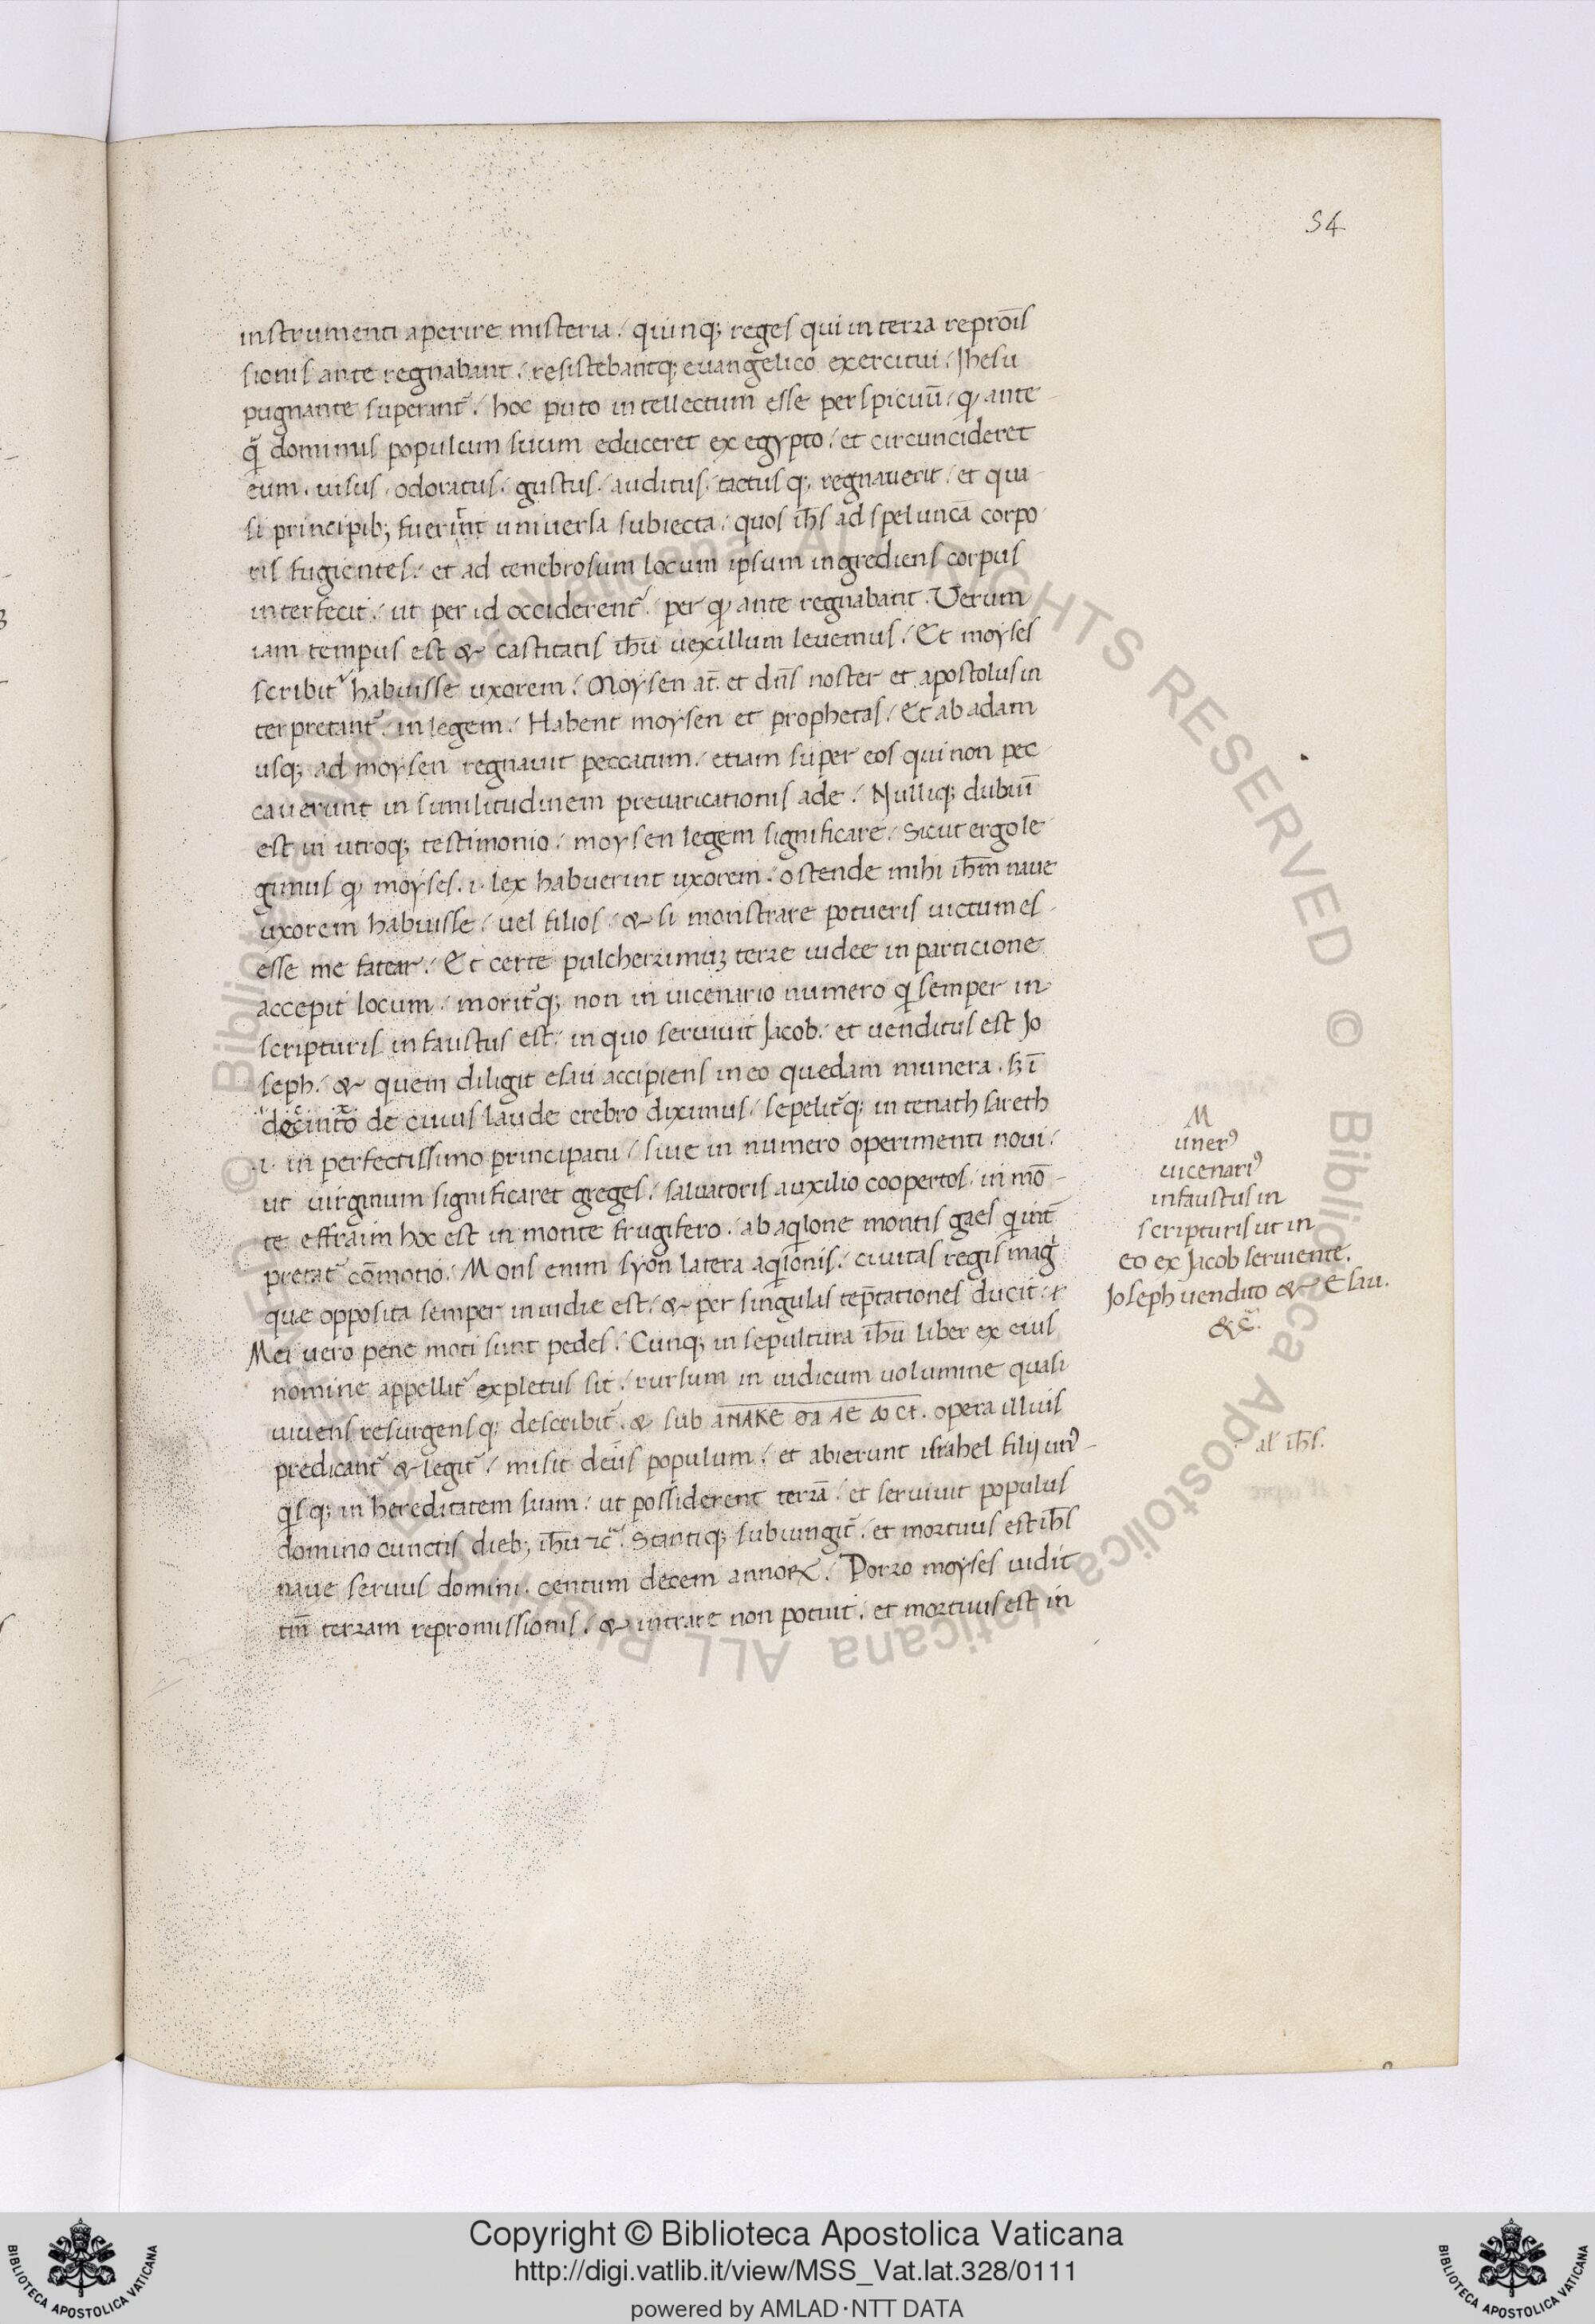 54
instrumenti aperire misteria / quinq; reges qui in terra reprom̄is
sionis ante regnabant / resistebantq; euangelico exercitui / Jhesu
pugnante superant᷑ / hoc puto intellectum esse perspicuū / ꝙ ante
q̃ dominus populum suum educeret ex egypto / et circuncideret
eum . uisus / odoratus / gustus / auditus / tactusq; regnauerit / et qua
si principib; fuerint uniuersa subiecta / quos ih̄s ad speluncā corpo
ris fugientes / et ad tenebrosum locum ipsum ingrediens corpus
interfecit / ut per id occiderent᷑ / per ꝙ ante regnabant . Verum
iam tempus est & castitatis ih̄u uexillum leuemus / Et moyses
scribit᷑ habuisse uxorem / Moysen at̄ et dn̄s noster et apostolus in
terpretant᷑ in legem / Habent moysen et prophetas / Et ab adam
usq; ad moysen regnauit peccatum / etiam super eos qui non pec
cauerunt in similitudinem preuaricationis ade / Nulliq; dubiū
est in utroq; testimonio / moysen legem significare / Sicut ergo le
gimus ꝙ moyses .i. lex habuerint uxorem / ostende mihi ih̄m naue
uxorem habuisse / uel filios / & si monstrare potueris uictum es
esse me fatear / Et certe pulcherrimuȝ terre iudee in particione
accepit locum / morit᷑q; non in uicenario numero q̇ semper in
scripturis infaustus est / in quo seruiuit Jacob / et uenditus est Jo
seph / & quem diligit esau accipiens in eo quedam munera . sȝ ī
de cuius laude crebro diximus / sepelit᷑q; in tenath sareth
.i. in perfectissimo principatu / siue in numero operimenti noui /
ut uirginum significaret greges / saluatoris auxilio coopertos / in mō
te effraim hoc est in monte frugifero / ab aq̇lone montis gaes q̇ int̄
pretat᷑ cōmotio / Mons enim syon latera aq̇lonis / ciuitas regis mag̍
que opposita semper inuidie est / & per singulas tēptationes ducit /
Mei uero pene moti sunt pedes / Cunq; in sepultura ih̄u liber ex eius
nomine appellit᷑ expletus sit / rursum in iudicum uolumine quasi
uiuens resurgensq; describit᷑ & sub opera illius
predicant᷑ & legit᷑ / misit deus populum / et abierunt israhel filij un̍
q̇sq; in hereditatem suam / ut possiderent terrā / et seruiuit populus
domino cunctis dieb; ih̄u ⁊c᷑ Statiq; subiungit᷑ / et mortuus est ih̄s
naue seruus domini . centum decem annoꝝ / Porro moyses uidit
tm̄ terram repromissionis / & intrare non potuit / et mortuus est in
M
unerꝰ
uicenariꝰ
infaustus in
scripturis ut in
eo ex Jacob seruiente.
Joseph uendito & Esau.
&c̄.
al' ih̄s.
Copyright © Biblioteca Apostolica Vaticana
http://digi.vatlib.it/view/MSS_Vat.lat.328/0111
powered by AMLAD·NTT DATA
BIBLIOTECA APOSTOLICA VATICANA
BIBLIOTECA APOSTOLICA VATICANA